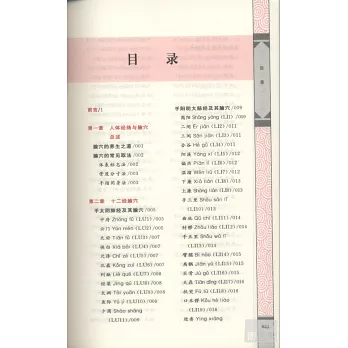 目 录
前言/1
第一章 人体经络与腧穴
总述
腧穴的养生之道/002
腧穴的常见取法/002
体表标志法/002
骨度分寸法/003
手指同身寸/003
第二章 十二经腧穴
手太阴肺经及其腧穴/005
中府 Zhōng fǔ (LU1) /005
云门 Yún mén (LU2) /005
天府 Tiān fǔ (LU3) /006
侠白 Xiá bái (LU4) /006
尺泽 Chǐ zé (LU5) /006
孔最 Kǒng zuì (LU6) /007
列缺 Liè quē (LU7) /007
经渠 Jīng qú (LU8) /007
太渊 Tài yuān (LU9) /008
鱼际 Yú jì (LU10) /008
少商 Shào shāng
(LU11) /009
手阳明大肠经及其腧穴/009
商阳 Shāng yáng (LI1) /010
二间 Èr jiān (LI2) /011
三间 Sān jiān (LI3) /011
合谷 Hé gǔ (LI4) /011
阳溪 Yáng xī (LI5) /011
偏历 Piān lì (LI6) /012
温溜 Wēn liū (LI7) /012
下廉 Xià lián (LI8) /012
上廉 Shàng lián (LI9) /013
手三里 Shǒu sān lǐ
(LI10) /013
曲池 Qū chí (LI11) /013
肘髎 Zhǒu liáo (LI12) /014
手五里 Shǒu wǔ lǐ
(LI13) /014
臂臑 Bì nào (LI14) /014
肩髃 Jiān yú (LI15) /015
巨骨 Jù gǔ (LI16) /015
天鼎 Tiān dǐng (LI17) /015
扶突 Fú tū (LI18) /016
口禾髎 Kǒu hé liáo
(LI19) /016
迎香 Yíng xiāng
目
录